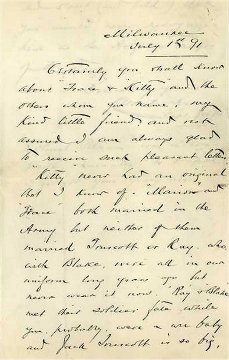 Milwaukee
July 1st 91
Certainly you shall know
about "Grace & Kitty" and the
others whom you name, my
kind little friend and rest
assured I am always glad
to receive such pleasant letters.
"Kitty" never had an original
that I know of. "Marion" and
Grace both married in the
Army but neither of them
married Truscott or Ray, who,
with Blake, were all in our
uniform long years ago but
never wear it now. Ray & Blake
met their soldier fate while
you, probably, were a wee baby
and Jack Truscott is so big,